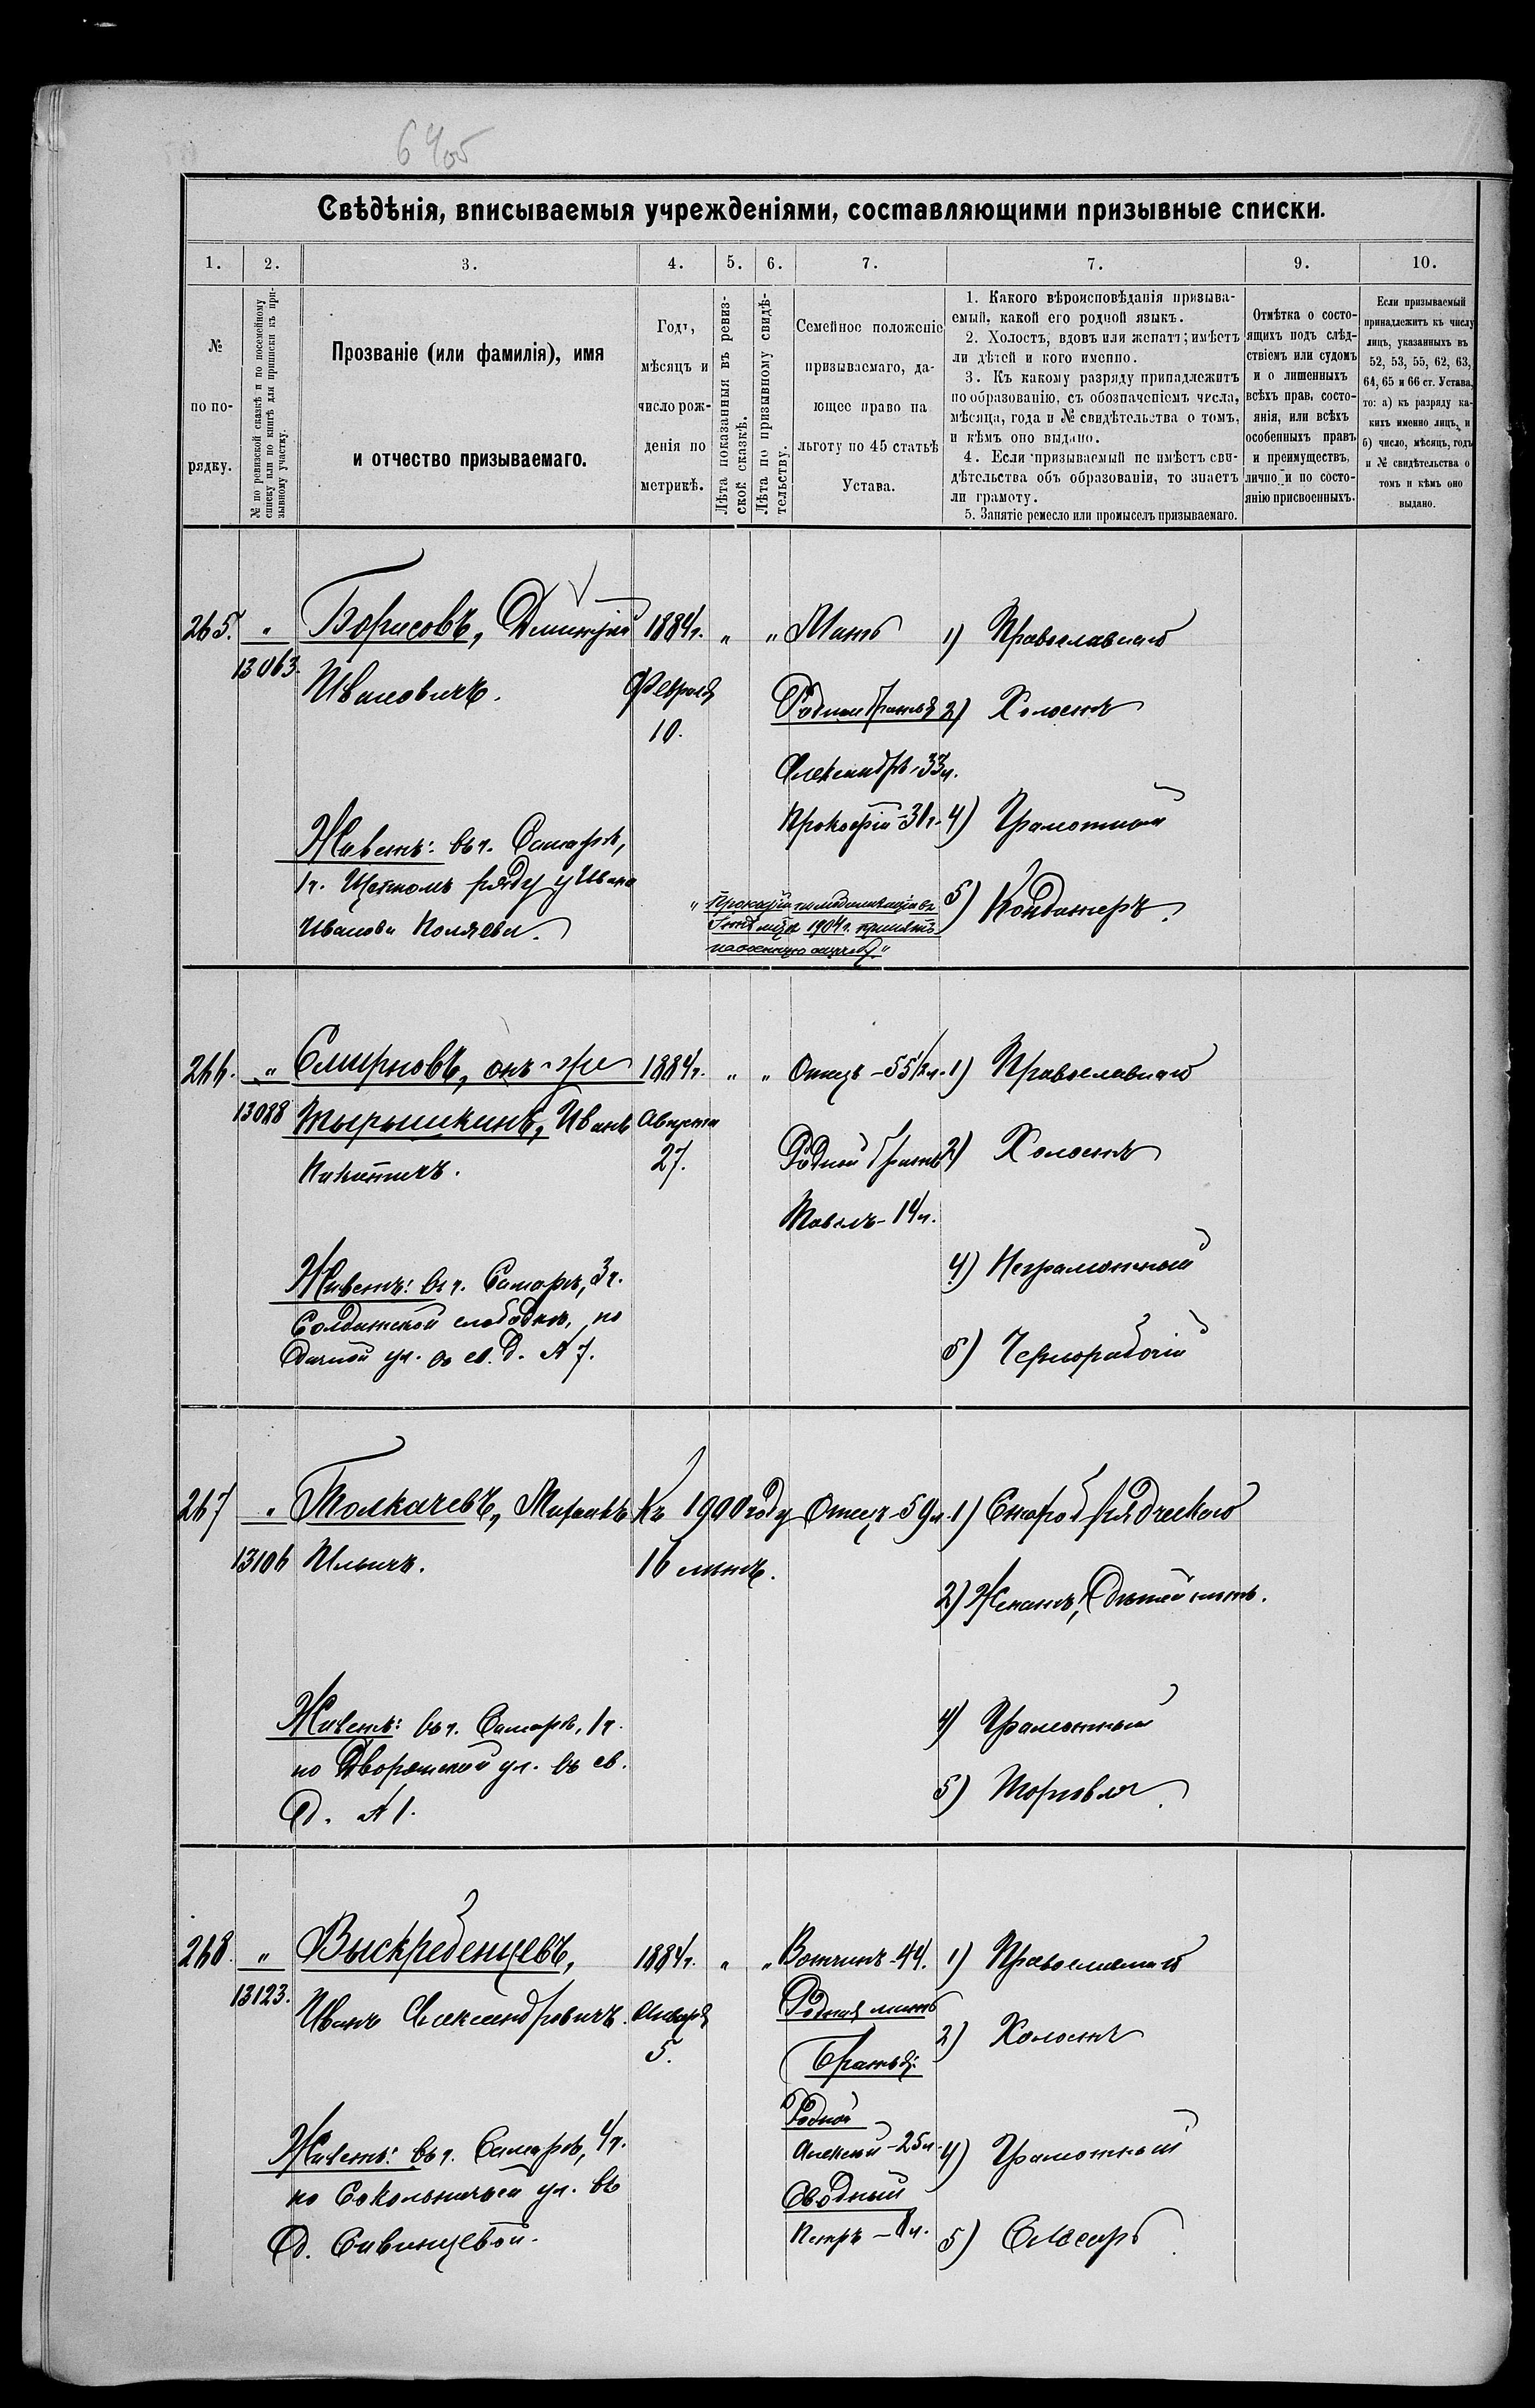 Свѣдѣнія, вписываемыя учрежденіями, составляющими призывные списки.
1. 2. 3. 4. 5. 6. 7. 7. 9. 10.
№
по по-
рядку.
№ по ревизской сказкѣ и по посемейному
списку или по книгѣ для приписки къ при-
зывному участку.
Прозваніе (или фамилія), имя
и отчество призываемаго.
Годъ,
мѣсяцъ и
число рож-
денія по
метрикѣ.
Лѣта показанныя въ ревиз-
ской сказкѣ.
Лѣта по призывному свидѣ-
тельству.
Семейное положеніе
призываемаго, да-
ющее право на
льготу по 45 статьѣ
Устава.
1. Какого вѣроисповѣданія призыва-
емый, какой его родной языкъ.
2. Холостъ, вдовъ или женатъ; имѣетъ
ли дѣтей и кого именно.
3. Къ какому разряду принадлежитъ
по образованію, съ обозначеніемъ числа,
мѣсяца, года и № свидѣтельства о томъ,
и кѣмъ оно выдано.
4. Если призываемый не имѣетъ сви-
дѣтельства объ образованіи, то знаетъ
ли грамоту.
5. Занятіе ремесло или промыселъ призываемаго.
Отмѣтка о состо-
ящихъ подъ слѣд-
ствіемъ или судомъ
и о лишенныхъ
всѣхъ прав, состо-
янія, или всѣхъ
особенныхъ правъ
и преимуществъ,
лично и по состо-
янію присвоенныхъ.
Если призываемый
принадлежитъ къ числу
лицъ, указанныхъ въ
52, 53, 55, 62, 63,
64, 65 и 66 ст. Устава,
то: а) къ разряду ка-
кихъ именно лицъ, и
б) число, мѣсяцъ, годъ
и № свидѣтельства о
томъ и кѣмъ оно
выдано.
265. "
13063.
Борисовъ, Дмитрій
Ивановичъ.
Живетъ: въ г. Самарѣ,
1 ч. Щепномъ ряду у Ивана
Иванова Поляева.
1884 г.
Февраля
10.
" "
Мать
Родные братья
Александръ - 33 л.
Прокофій - 31 г.
" Прокофій по мобилизаціи въ
Іюнѣ мѣсяцѣ 1904 г. принятъ
на военную службу "
1) Православнаго
2) Холостъ
4) Грамотный
5) Кондитеръ.
266. "
13088
Смирновъ, онъ-же
Тырышкинъ, Иванъ
Никитичъ.
Живетъ: въ г. Самарѣ, 3 ч.
Солдатской слободкѣ, по
Дачной ул. въ св. д. № 7.
1884 г.
Августа
27.
" "
Отецъ - 55 1/2 л.
Родной братъ
Павелъ - 14 л.
1) Православнаго
2) Холостъ
4) Неграмотный
5) Чернорабочій
267 "
13106
Толкачевъ, Михаилъ
Ильичъ.
Живетъ: въ г. Самарѣ, 1 ч.
по Дворянской ул. въ св.
д. № 1.
Къ 1900 году
16 лѣтъ.
Отецъ - 59 л.
1) Старообрядческаго
2) Женатъ, дѣтей нѣтъ.
4) Грамотный
5) Торговля.
268. "
13123.
Выскребенцевъ,
Иванъ Александровичъ.
Живетъ: въ г. Самарѣ, 4 ч.
по Сокольничьей ул. въ
д. Савинцевой.
1884 г.
Января
5.
" "
Вотчимъ - 44.
Родная мать
Братья:
Родной
Алексѣй - 25 л.
Сводный
Петръ - 8 л.
1) Православнаго
2) Холостъ
4) Грамотный
5) Слесарь